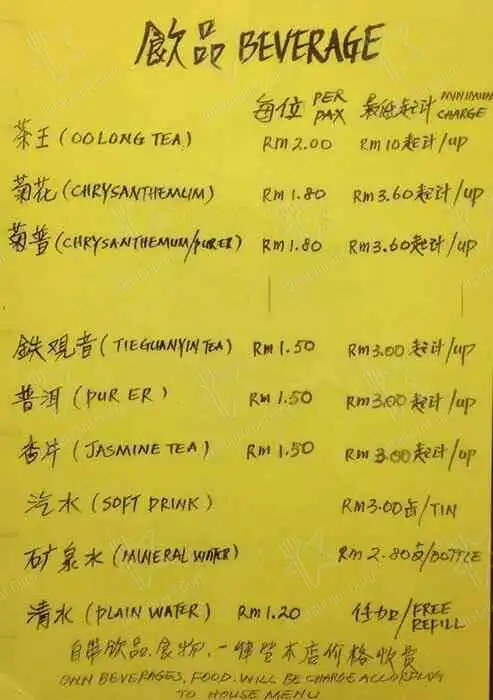 飲品 BEVERAGE
每位 PER PAX 最低起计 MINIMUM CHARGE
茶王 (OOLONG TEA) RM 2.00 RM 10 起计/UP
菊花 (CHRYSANTHEMUM) RM 1.80 RM 3.60 起计/UP
菊普 (CHRYSANTHEMUM/PUR ER) RM 1.80 RM 3.60 起计/UP
鉄观音 (TIEGUANYIN TEA) RM 1.50 RM 3.00 起计/UP
普洱 (PUR ER) RM 1.50 RM 3.00 起计/UP
香片 (JASMINE TEA) RM 1.50 RM 3.00 起计/UP
汽水 (SOFT DRINK) RM 3.00 /TIN
矿泉水 (MINERAL WATER) RM 2.80 /BOTTLE
清水 (PLAIN WATER) RM 1.20 任加/FREE REFILL
自带飲品、食物、一律 本店价格收费
OWN BEVERAGES, FOOD. WILL BE CHARGE ACCORDING
TO HOUSE MENU